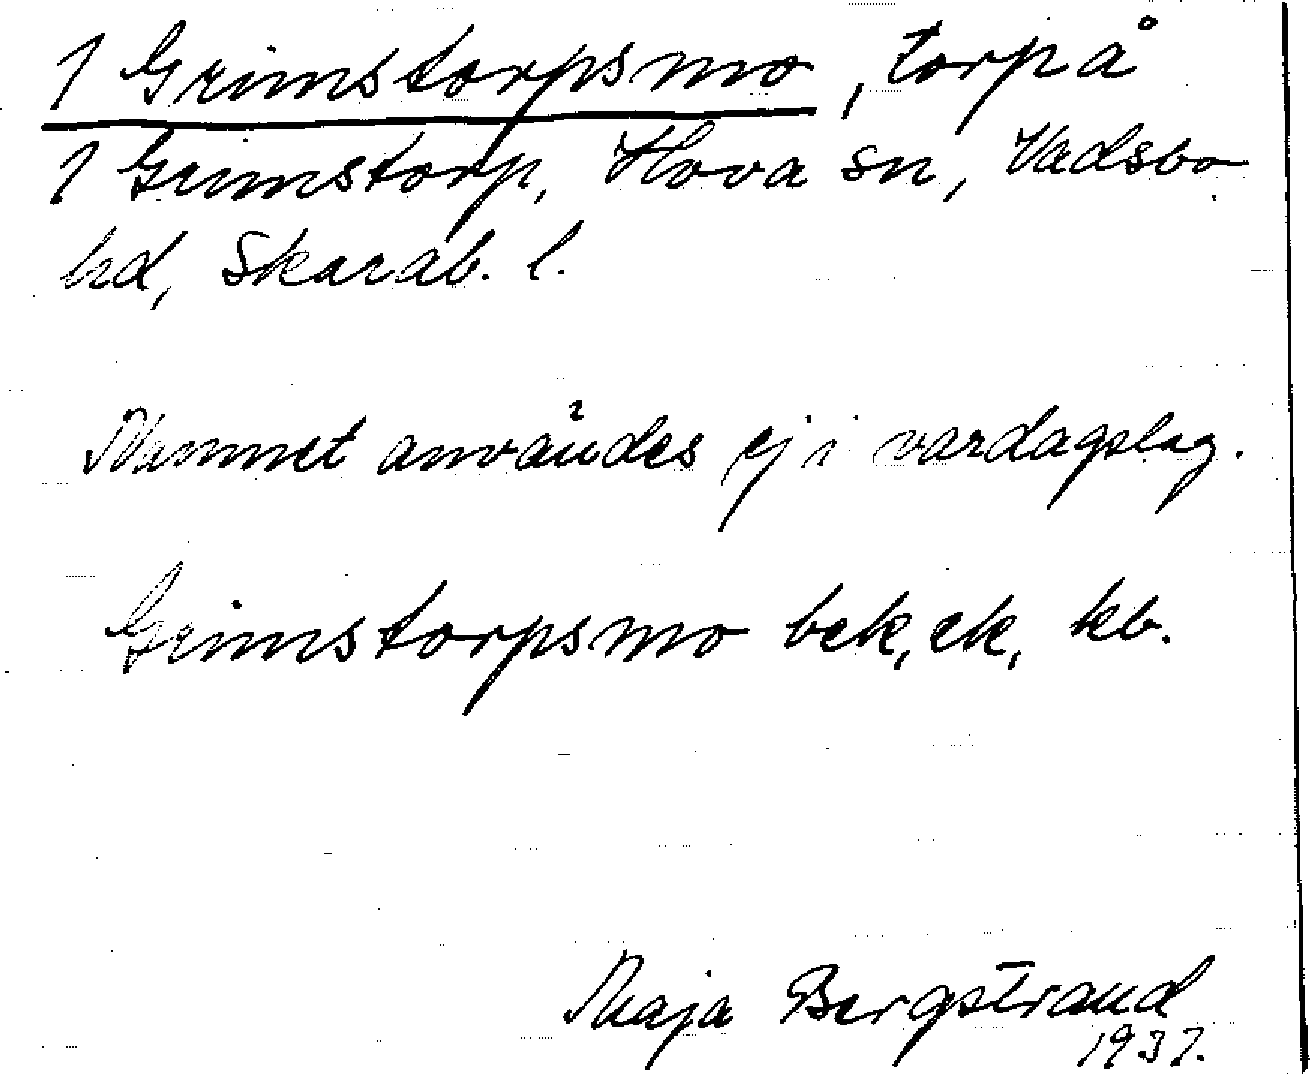 1 Grimstorpsmo, torp å
1 Grimstorp, Hova sn, Vadsbo
hd, Skarab. l.
Namnet användes ej i vardagslag.
Grimstorpsmo bek, ek, kb.
Maja Bergstrand
1937.